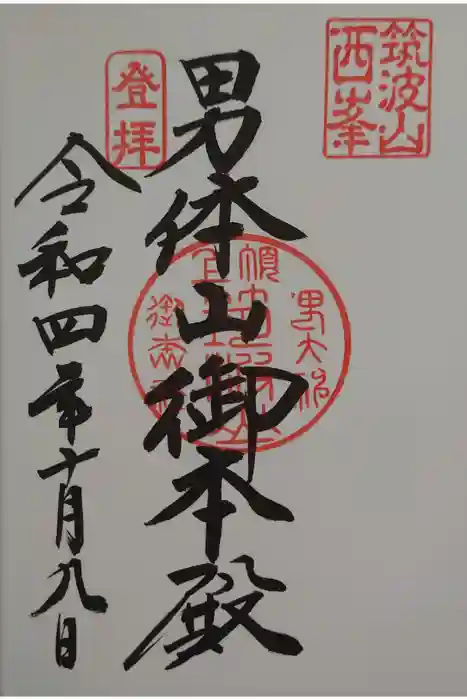 筑波山
西峯
登拝
男体山御本殿
令和四年十月九日